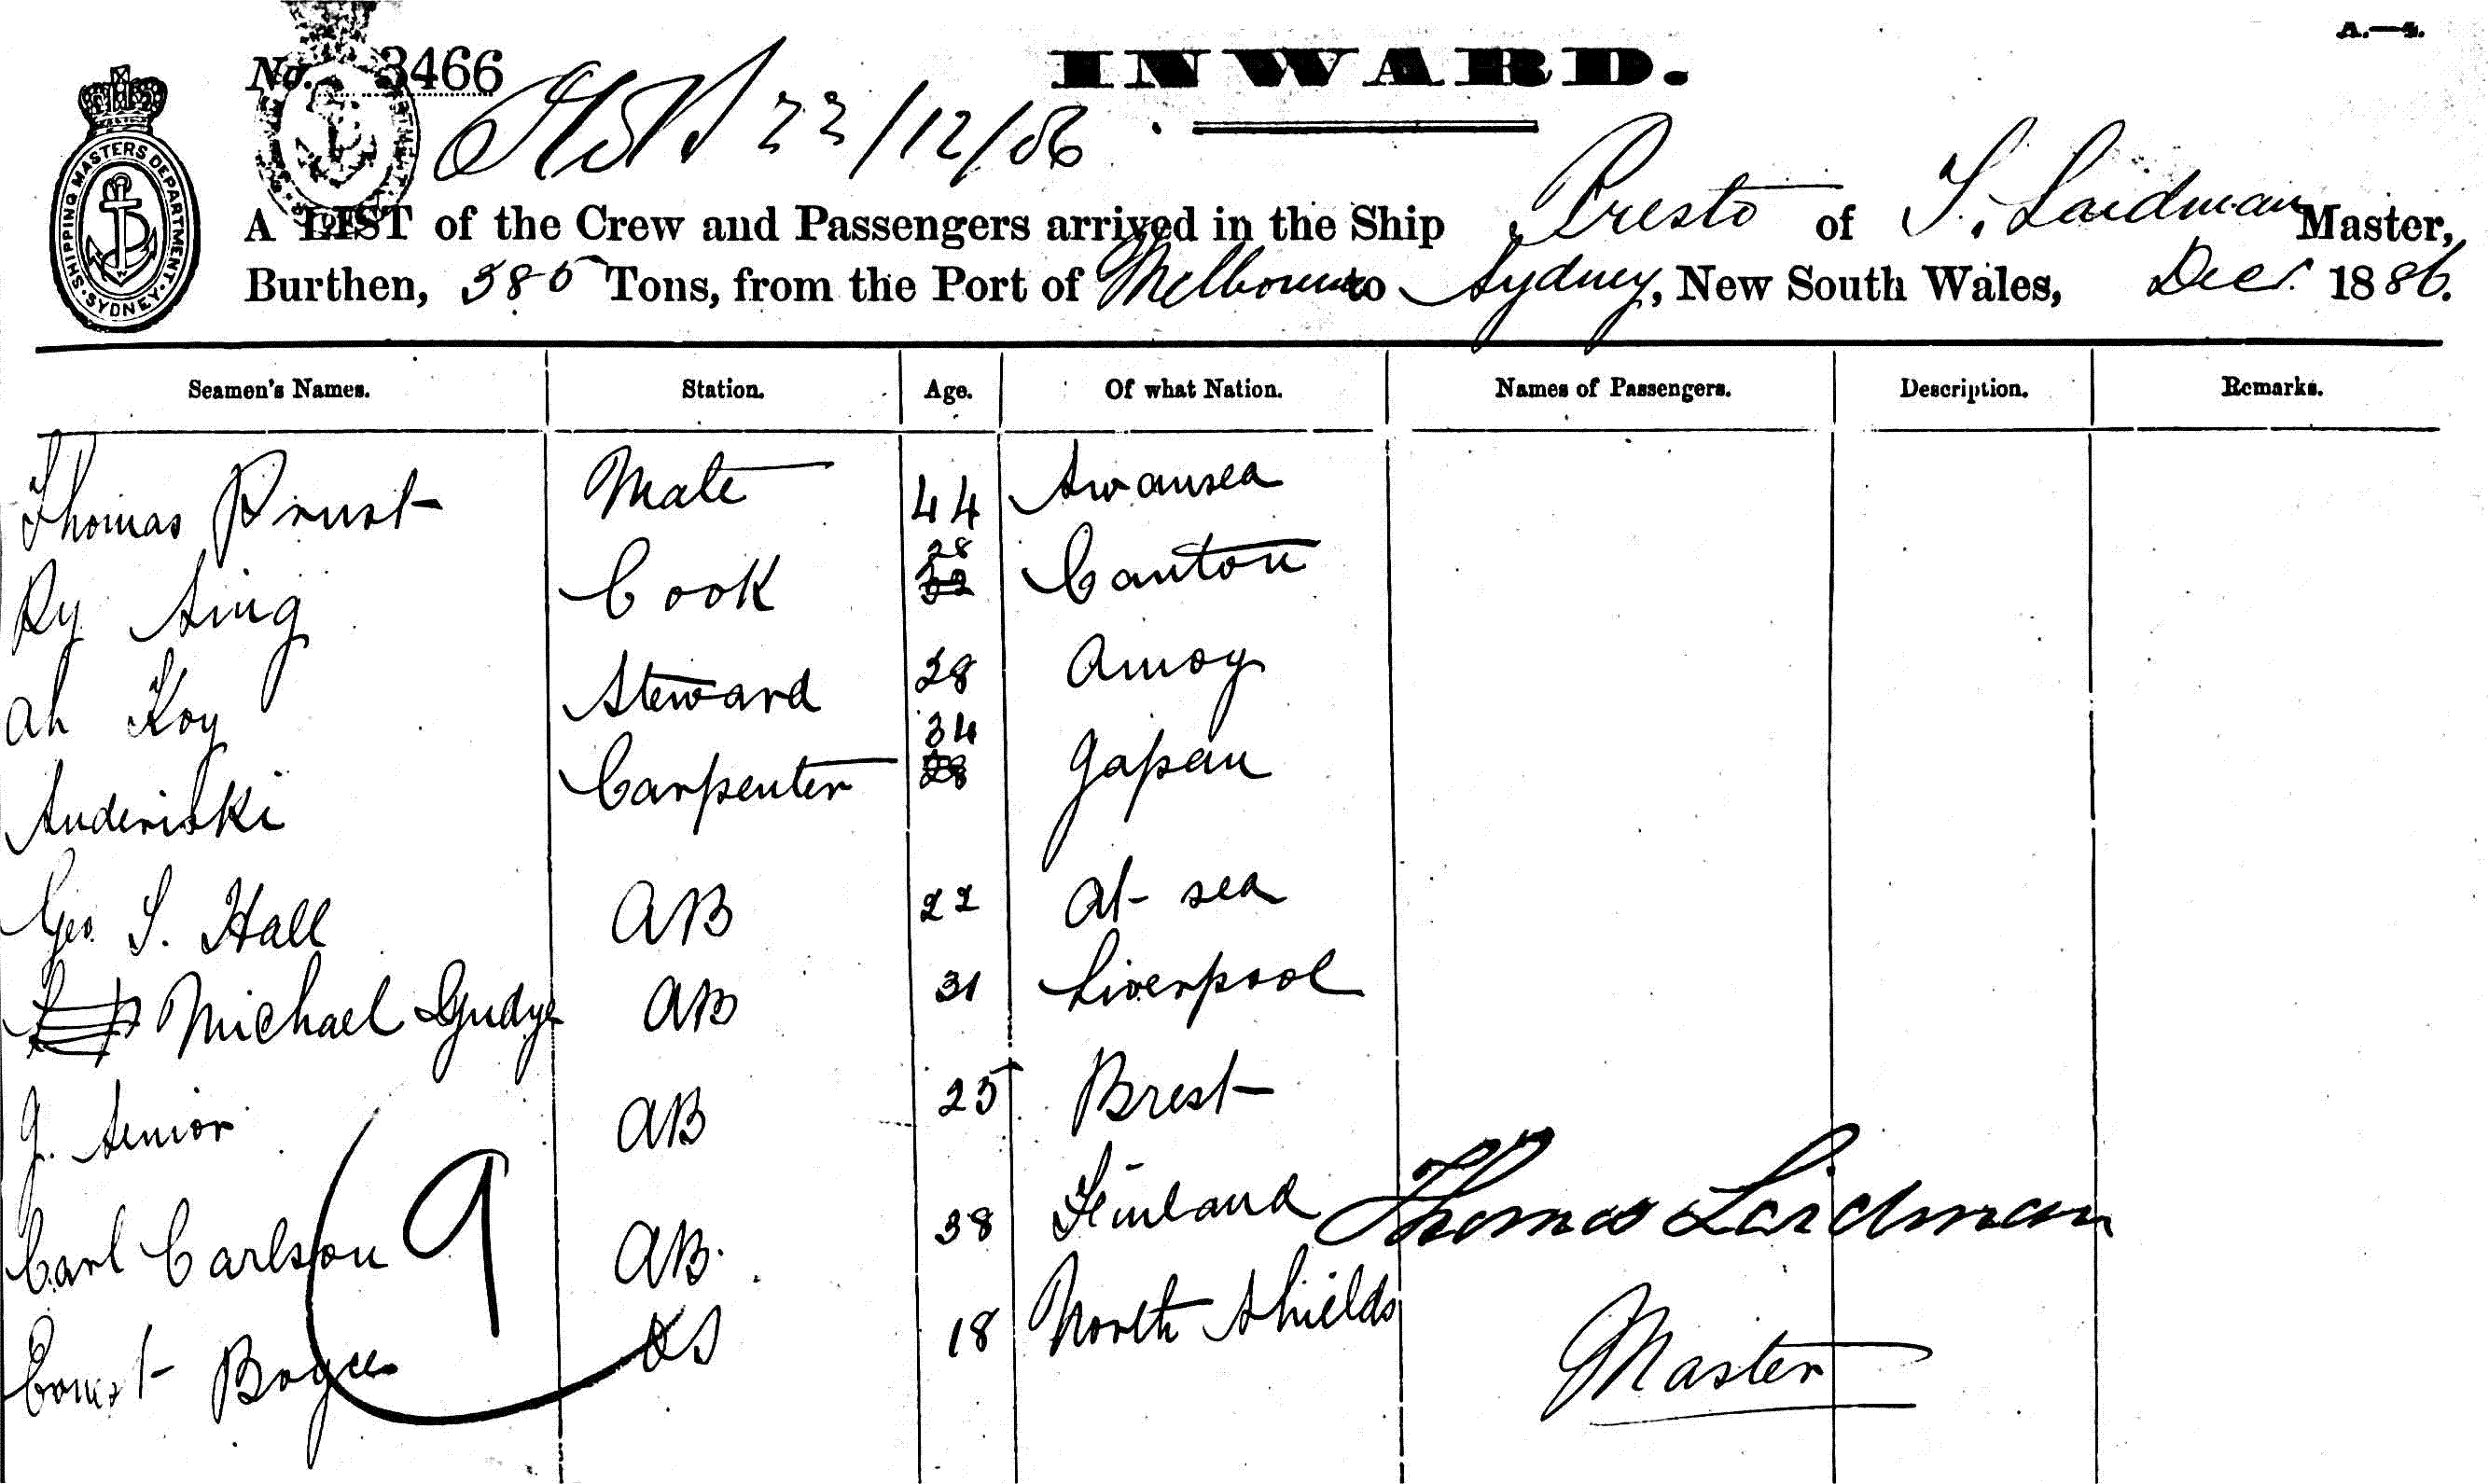 A.—4.
No. 3466
INWARD.
23/12/86
SHIPPING MASTERS DEPARTMENT SYDNEY
A LIST of the Crew and Passengers arrived in the Ship Presto of T. Laidman Master,
Burthen, 385 Tons, from the Port of Melbourne to Sydney, New South Wales, Decr. 1886.
Seamen's Names. Station. Age. Of what Nation. Names of Passengers. Description. Remarks.
Thomas Prust Mate 44 Swansea
Ry Sing Cook 28 32 Canton
Ah Koy Steward 28 Amoy
Carpenter 34 28 Japan
Geo. S. Hall AB 22 At sea
Michael AB 31 Liverpool
J. Senior AB 25 Brest
Carl Carlson AB. 38 Finland Thomas Laidman
Ernest Boyce OS 18 North Shields Master
9